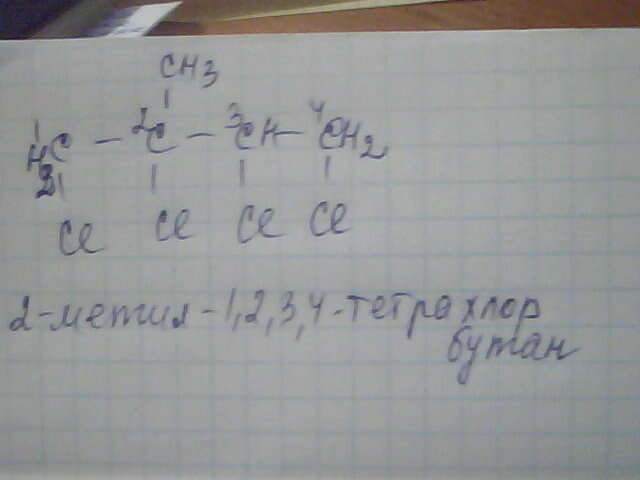 CH3
H2C - 2C - 3CH - 4CH2
Cl Cl Cl Cl
2-метил-1,2,3,4-тетрахлор
бутан